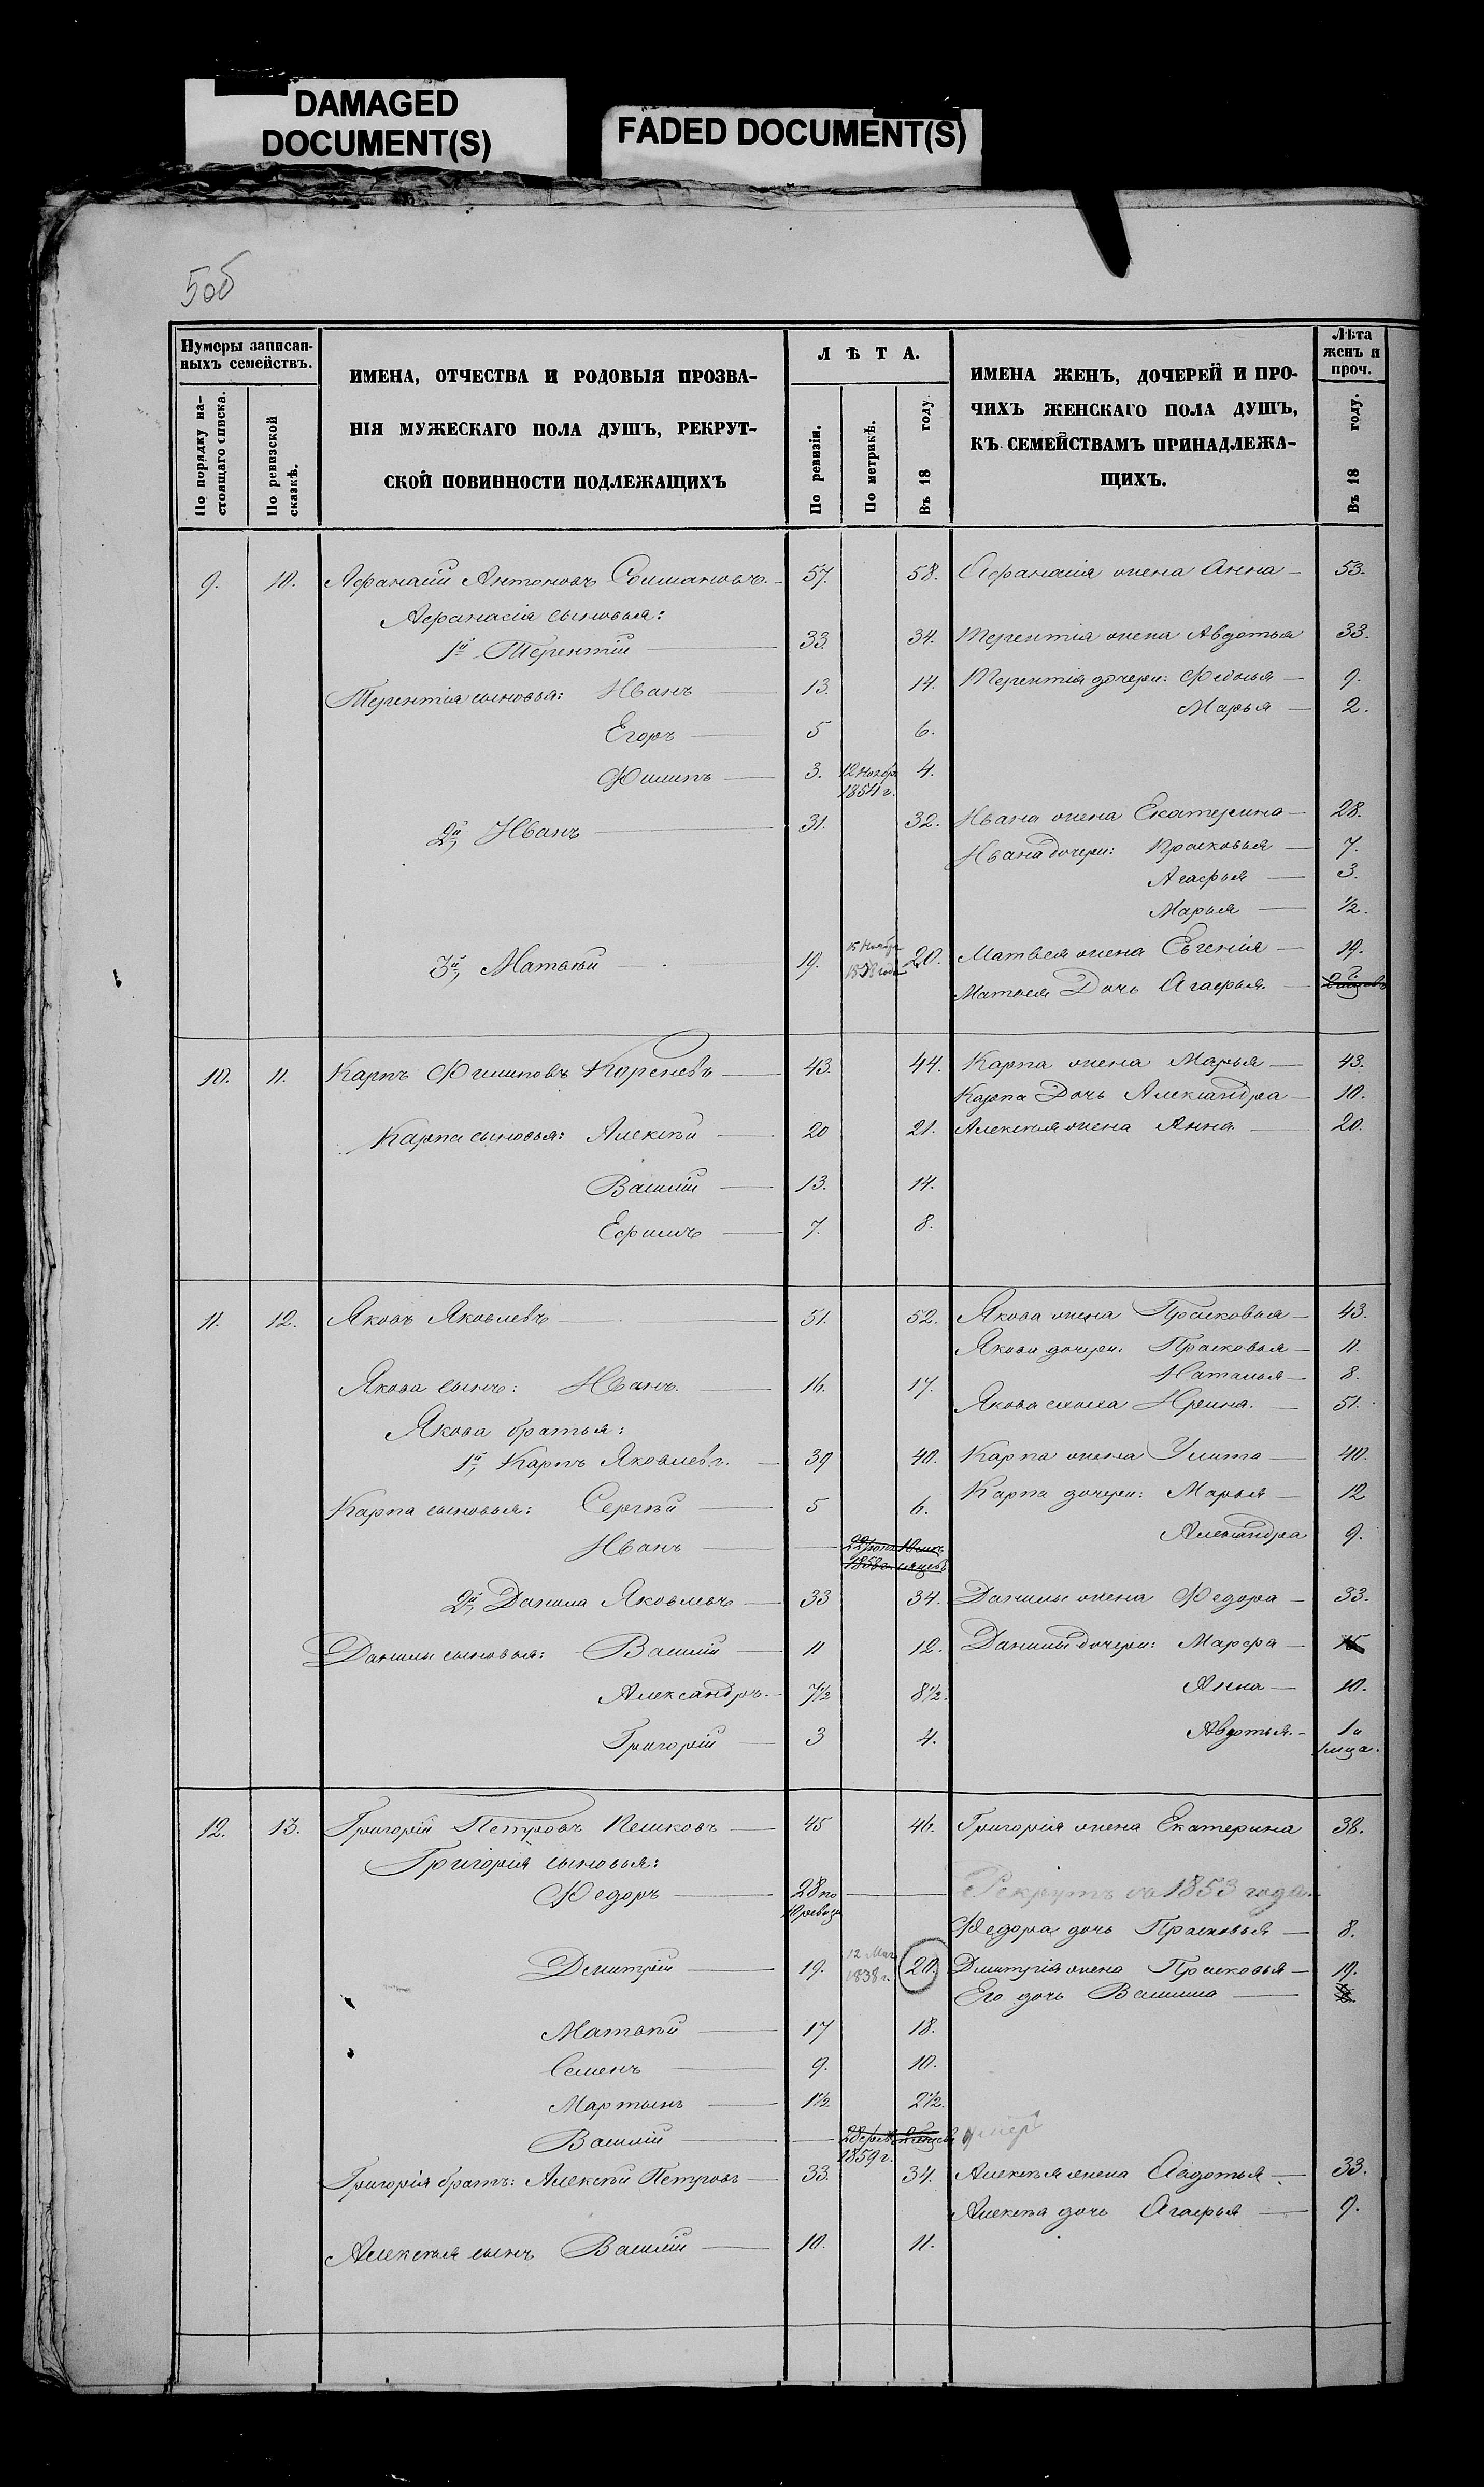 DAMAGED
DOCUMENT(S)
FADED DOCUMENT(S)
50б
Нумеры записан-
ныхъ семействъ.
По порядку на-
стоящаго списка.
По ревизской
сказкѣ.
ИМЕНА, ОТЧЕСТВА И РОДОВЫЯ ПРОЗВА-
НІЯ МУЖЕСКАГО ПОЛА ДУШЪ, РЕКРУТ-
СКОЙ ПОВИННОСТИ ПОДЛЕЖАЩИХЪ
ЛѢТА.
По ревизіи.
По метрикѣ.
Въ 18 году.
ИМЕНА ЖЕНЪ, ДОЧЕРЕЙ И ПРО-
ЧИХЪ ЖЕНСКАГО ПОЛА ДУШЪ,
КЪ СЕМЕЙСТВАМЪ ПРИНАДЛЕЖА-
ЩИХЪ.
Лѣта
женъ и
проч.
Въ 18 году.
9. 10. Афанасій Антоновъ 57. 58. Афанасія жена Анна 53.
Афанасія сыновья:
1й Терентій 33. 34. Терентія жена Авдотья 33.
Терентія сыновья: Иванъ 13. 14. Терентія дочери: Федосья 9.
Марья 2.
Егоръ 5 6.
Филипъ 3. 12 Ноябр 4.
1854 г.
2й, Иванъ 31. 32. Ивана жена Екатерина 28.
Ивана дочери: Прасковья 7.
Агафья 3.
Марья ½.
3й, Матвѣй 19. 15 Ноября 20. Матвея жена Евгенія 19.
1838 года
Матвея Дочь Агафья.
10. 11. Карпъ Филиповъ Кореневъ 43. 44. Карпа жена Марья 43.
Карпа Дочь Александра 10.
Карпа сыновья: Алексѣй 20 21. Алексѣя жена Анна 20.
Василій 13. 14.
Ефимъ 7. 8.
11. 12. Яковъ Яковлевъ 51. 52. Якова жена Прасковья 43.
Якова дочери: Прасковья 11.
Наталья 8.
Якова сынъ: Иванъ. 16. 17.
Якова сноха Ирина. 51.
Якова братья:
1й, Карпъ Яковлевъ. 39 40. Карпа жена Улита 40.
Карпа сыновья: Сергѣй 5 6. Карпа дочери: Марья 12
Александра 9.
Иванъ 22 Іюня
1858 г.
2й, Данила Яковлевъ 33 34. Данилы жена Федора 33.
Данилы сыновья: Василій 11 12. Данилы дочери: Марфа 15
Анна 10.
Александръ. 7½ 8½.
Григорій 3 4. Авдотья. 1го
мца.
12. 13. Григорій Петровъ Пешковъ 45 46. Григорія жена Екатерина 38.
Григорія сыновья:
Федоръ 28 по Рекрутъ съ 1853 года.
10 ревизіи
Федора дочь Прасковья 8.
Дмитрій 19. 12 Мая 20. Дмитрія жена Прасковья 19.
1838 г.
Его дочь Василиса
Матвѣй 17 18.
Семенъ 9. 10.
Мартынъ 1½ 2½.
Василій 28 февр. умеръ
1859 г.
Григорія братъ: Алексѣй Петровъ 33. 34. Алексѣя жена Авдотья 33.
Алексѣя дочь Агафья 9.
Алексѣя сынъ Василій 10. 11.